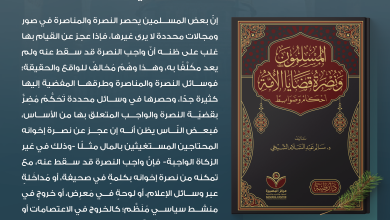 إنَّ بعض المسلمين يحصر النصرة والمناصرة في صور
ومجالات محددة لا يرى غيرها، فإذا عجز عن القيام بها
غلب على ظنه أنَّ واجب النصرة قد سقط عنه ولم
يعد مكلَّفًا به، وهذا وهمٌ مخالفٌ للواقع والحقيقة؛
فوسائل النصرة والمناصرة وطرقها المفضية إليها
كثيرة جدًّا، وحصرها في وسائل محددة تحكُّم مضرٌّ
بحكم النصرة والواجب المتعلق بها من الأساس،
فبعض النَّاس يظن أنه إن عجز عن نصرة إخوانه
المحتاجين المستغيثين بالمال مثلًا -وذلك في غير
الزكاة الواجبة- فإنَّ واجب النصرة قد سقط عنه، مع
تمكنه من نصرة إخوانه بكلمةٍ في صحيفة، أو مداخلةٍ
عبر وسائل الإعلام، أو لوحة في معرض، أو خروج في
منشط سياسي مُنظم؛ كالخروج في الاعتصامات أو
المسلمون
ونصرة قضايا الأمة
أحكام وضوابط